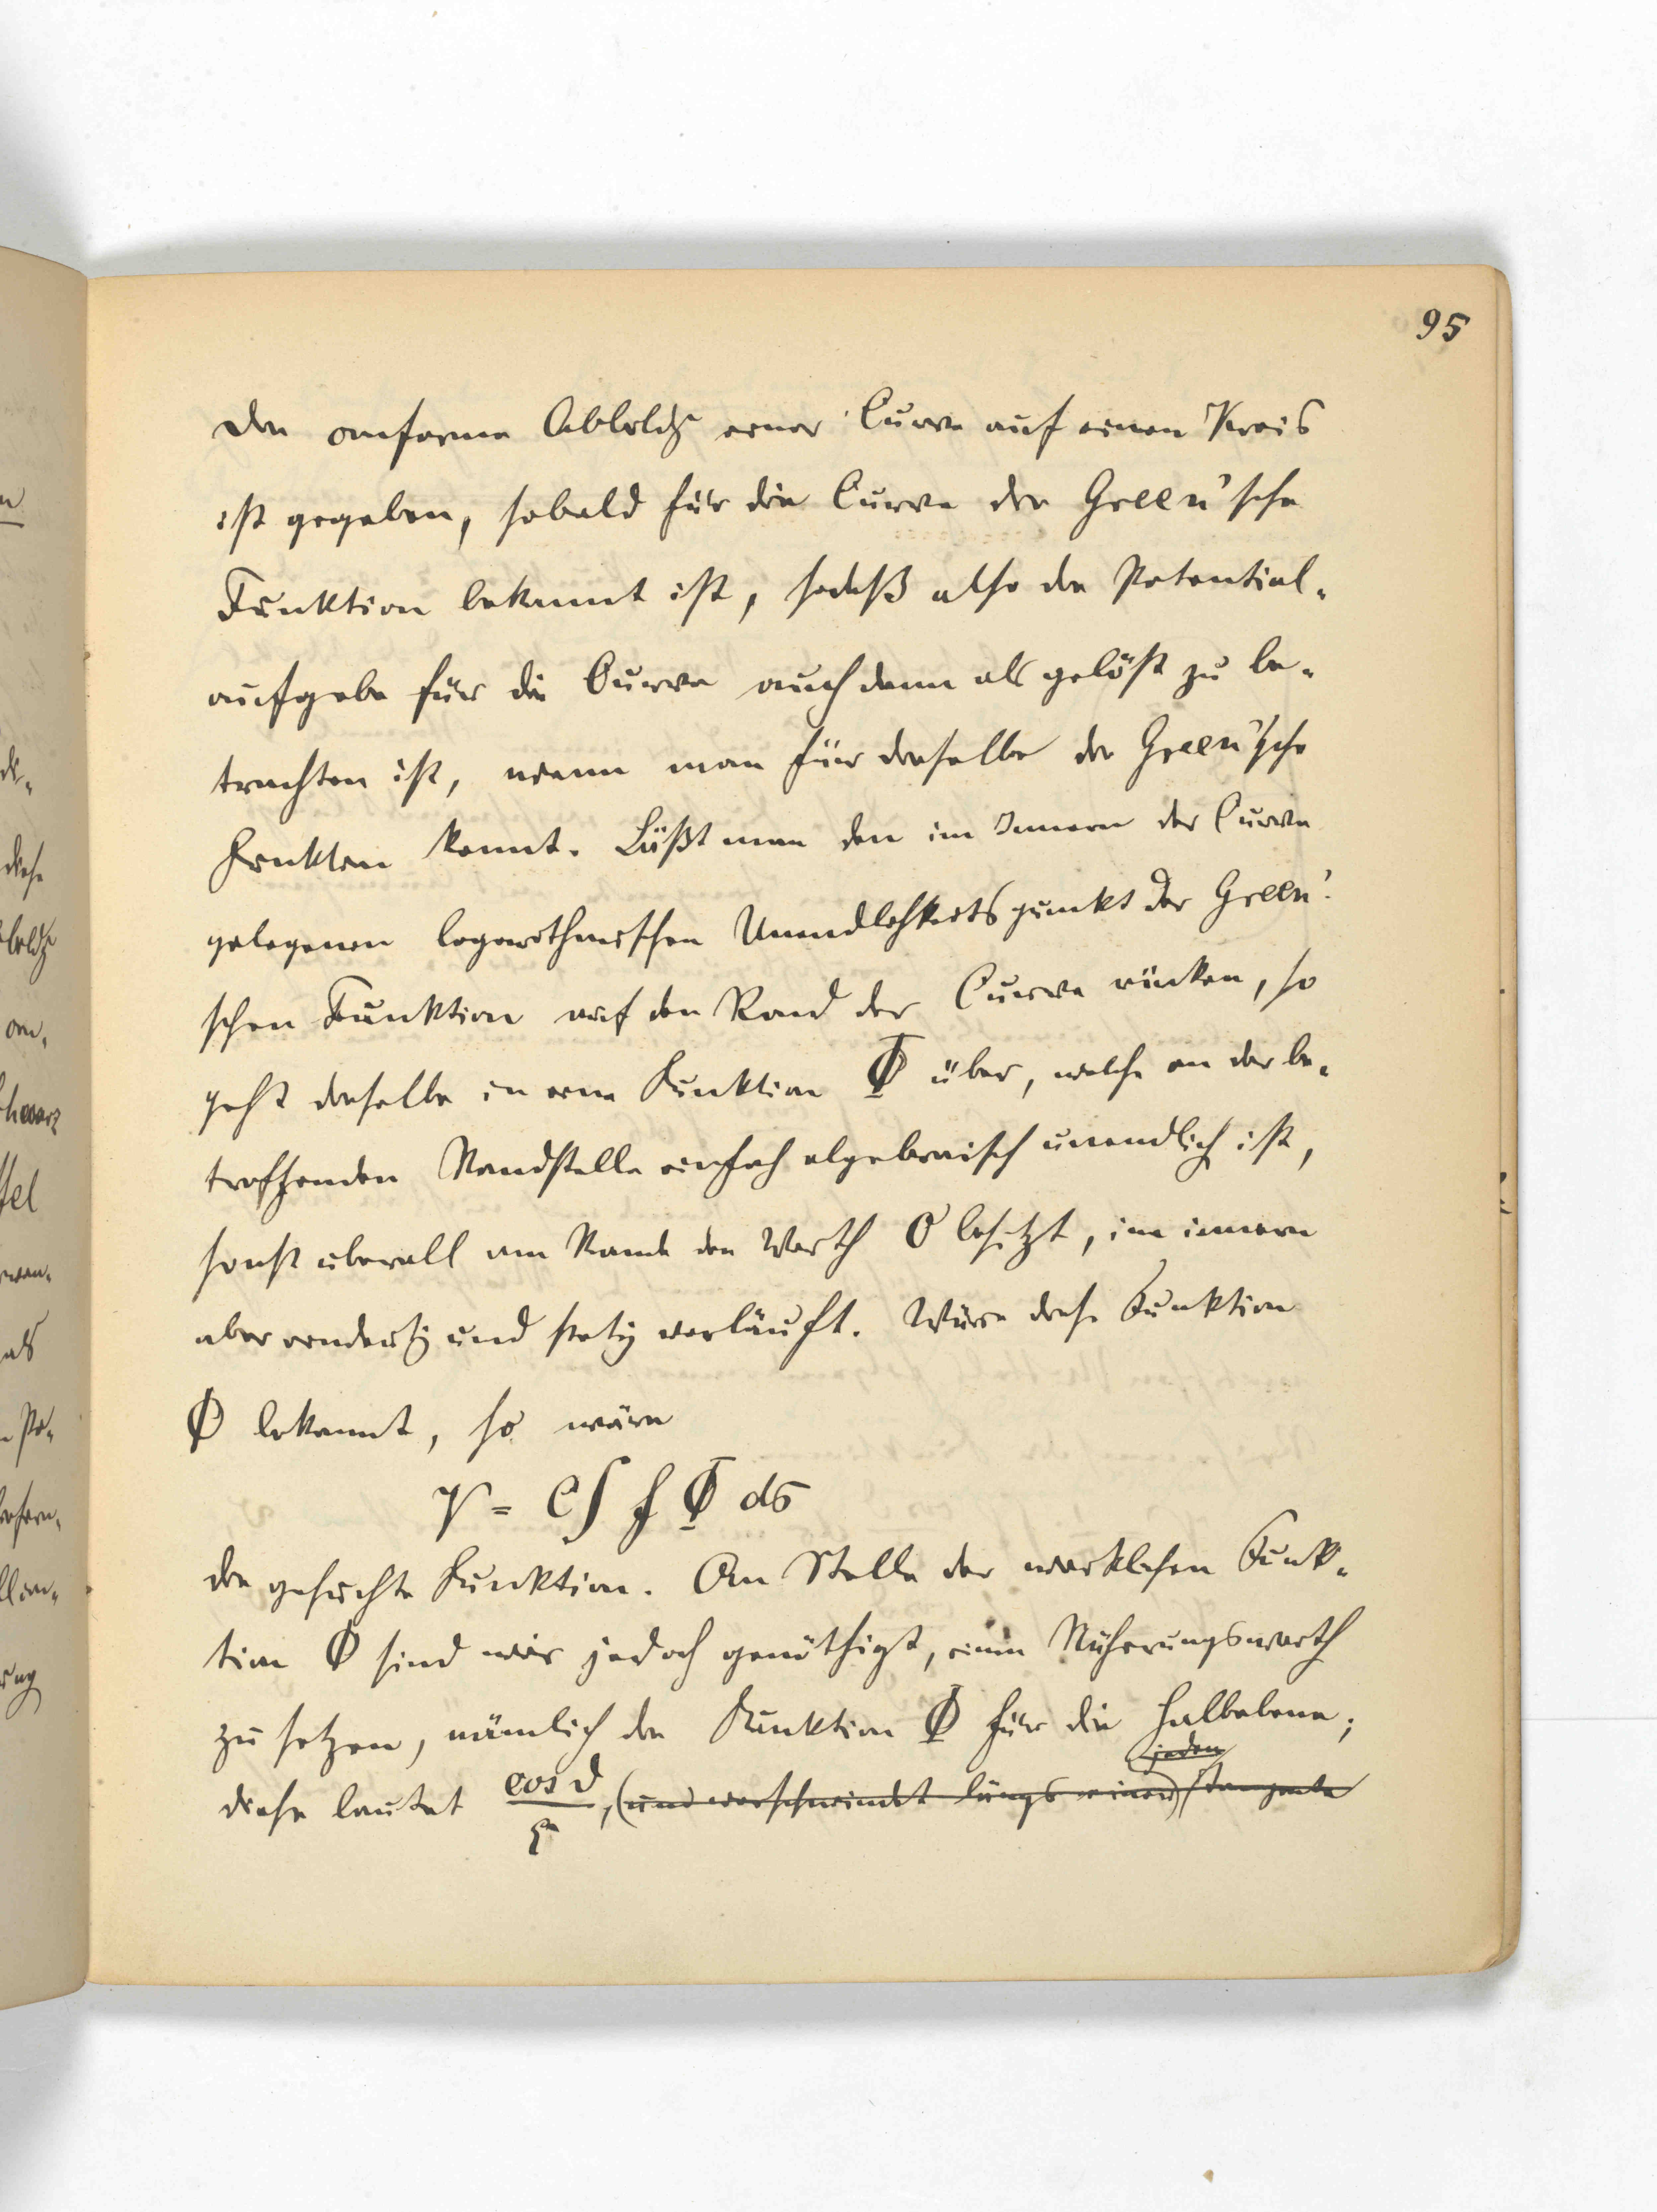 95
Die conforme Abbildg einer Curve auf einen Kreis
ist gegeben, sobald für die Curve die Green'sche
Funktion bekannt ist, sodaß also die Potential-
aufgabe für die Curve auch dann als gelöst zu be-
trachten ist, wenn man für dieselbe die Green'sche
Funktion kennt. Läßt man den im Innern der Curve
gelegenen logarithmischen Unendlichkeitspunkt der Green'-
schen Funktion auf den Rand der Curve rücken, so
geht dieselbe in eine Funktion Φ über, welche an der be-
treffenden Randstelle einfach algebraisch unendlich ist,
sonst überall am Rande den Werth 0 besitzt, im innern
aber eindeutig und stetig verläuft. Wäre diese Funktion
Φ bekannt, so wäre
V = C ∫ f Φ ds
die gesuchte Funktion. An Stelle der wirklichen Funk-
tion Φ sind wir jedoch genöthigt, einen Näherungswerth
zu setzen, nämlich die Funktion Φ für die Halbebene;
jeden
diese lautet cos ϑ / r, (und verschwindet längs einer) Tangente